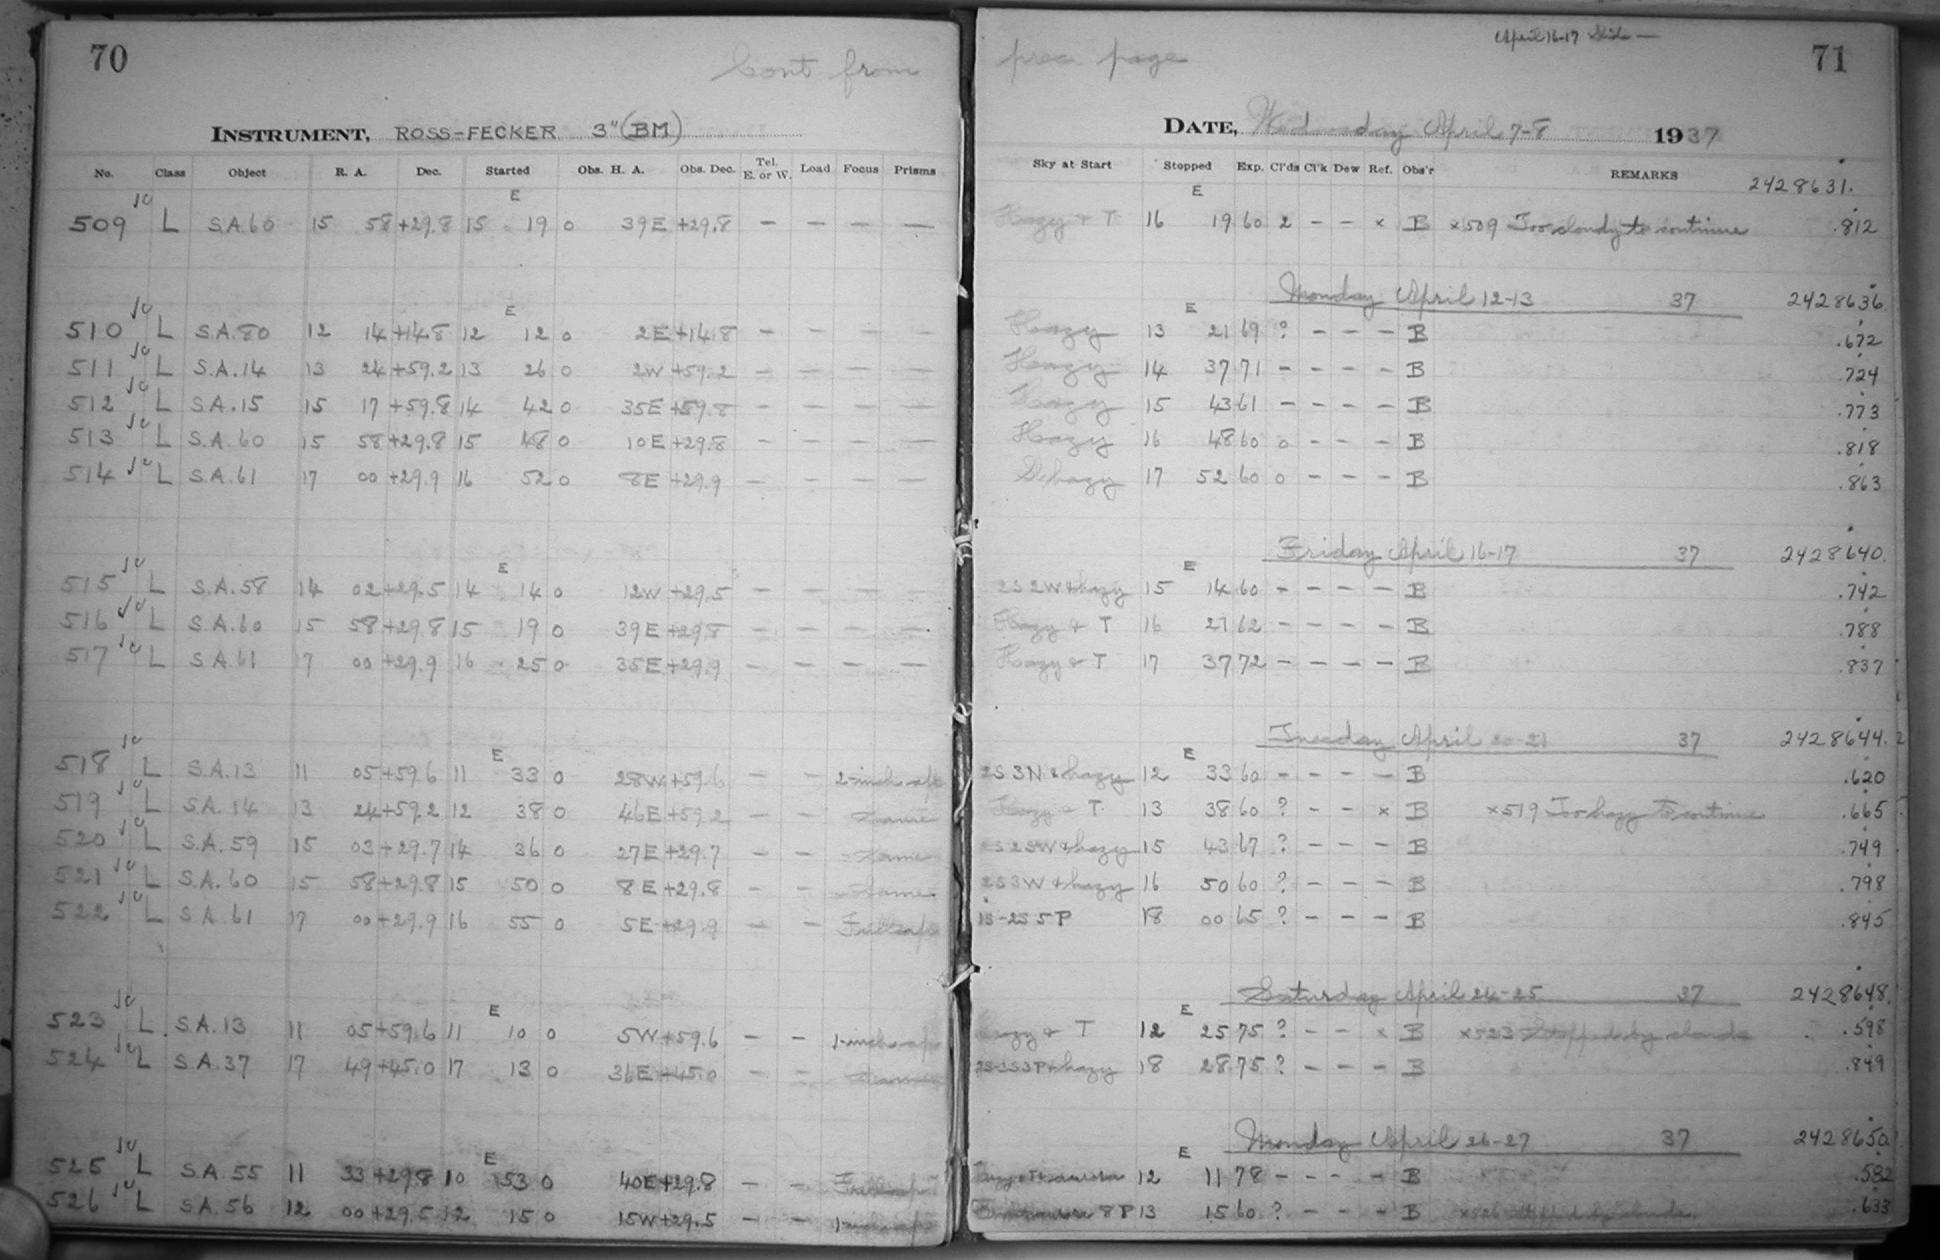 70
Cont from
INSTRUMENT, ROSS-FECKER 3"(BM)
No. Class Object R. A. Dec. Started Obs. H. A. Obs. Dec. Tel. E. or W. Load Focus Prisms
E
509 L S.A.60 15 58 +29.8 15 19 0 39E +29.8 — — — —
E
510 L S.A.80 12 14 +14.8 12 12 0 2E +14.8 — — — —
511 L S.A.14 13 24 +59.2 13 26 0 2W +59.2 — — — —
512 L S.A.15 15 17 +59.8 14 42 0 35E +59.8 — — — —
513 L S.A.60 15 58 +29.8 15 48 0 10E +29.8 — — — —
514 L S.A.61 17 00 +29.9 16 52 0 8E +29.9 — — — —
E
515 L S.A.58 14 02 +29.5 14 14 0 12W +29.5 — — — —
516 L S.A.60 15 58 +29.8 15 19 0 39E +29.8 — — — —
517 L S.A.61 17 00 +29.9 16 25 0 35E +29.9 — — — —
E
518 L S.A.13 11 05 +59.6 11 33 0 28W +59.6 — — 2-inch
519 L S.A.14 13 24 +59.2 12 38 0 46E +59.2 — — Same
520 L S.A.59 15 03 +29.7 14 36 0 27E +29.7 — — Same
521 L S.A.60 15 58 +29.8 15 50 0 8E +29.8 — — Same
522 L S.A.61 17 00 +29.9 16 55 0 5E +29.9 — — Full
E
523 L S.A.13 11 05 +59.6 11 10 0 5W +59.6 — — 1-inch
524 L S.A.37 17 49 +45.0 17 13 0 36E +45.0 — —
E
525 L S.A.55 11 33 +29.8 10 53 0 40E +29.8 — —
526 L S.A.56 12 00 +29.5 12 15 0 15W +29.5 — — 1-inch
April 16-17
71
prec page
DATE, Wednesday April 7-8 1937
Sky at Start Stopped Exp. Cl'ds Cl'k Dew Ref. Obs'r REMARKS 2428631.
E
Hazy & T 16 19 60 2 – – x B x509 Too cloudy to continue .812
Monday April 12-13 37 2428636
E
Hazy 13 21 69 ? – – – B .672
Hazy 14 37 71 – – – – B .724
Hazy 15 43 61 – – – – B .773
Hazy 16 48 60 0 – – – B .818
S. hazy 17 52 60 0 – – – B .863
Friday April 16-17 37 2428640.
E
2S 2W & hazy 15 14 60 – – – – B .742
Hazy & T 16 21 62 – – – – B .788
Hazy & T 17 37 72 – – – – B .837
Tuesday April 20-21 37 2428644.
E
2S 3N & hazy 12 33 60 – – – – B .620
Hazy & T 13 38 60 ? – – x B x519 Too hazy to continue .665
& hazy 15 43 67 ? – – – B .749
2S 3W & hazy 16 50 60 ? – – – B .798
1S-2S 5P 18 00 65 ? – – – B .845
Saturday April 24-25 37 2428648.
E
Hazy & T 12 25 75 ? – – x B x523 Stopped by clouds .598
& hazy 18 28 75 ? – – – B .849
Monday April 26-27 37 2428650
E
12 11 78 – – – – B .582
8P 13 15 60 ? – – – B .633